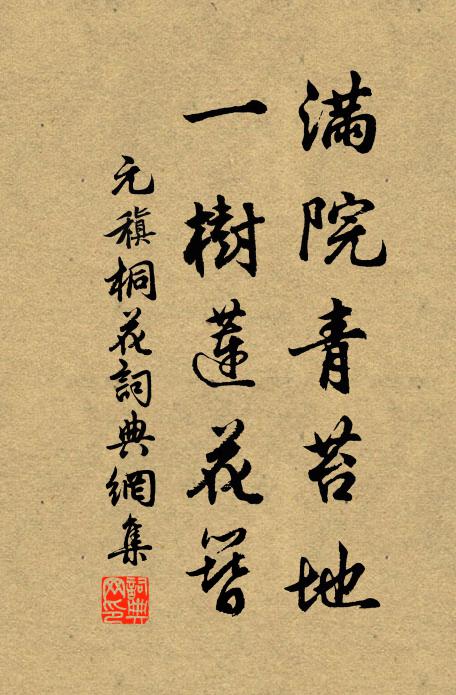 滿院青苔地
一樹蓮花簪
元稹桐花詞典網集
詞典网印